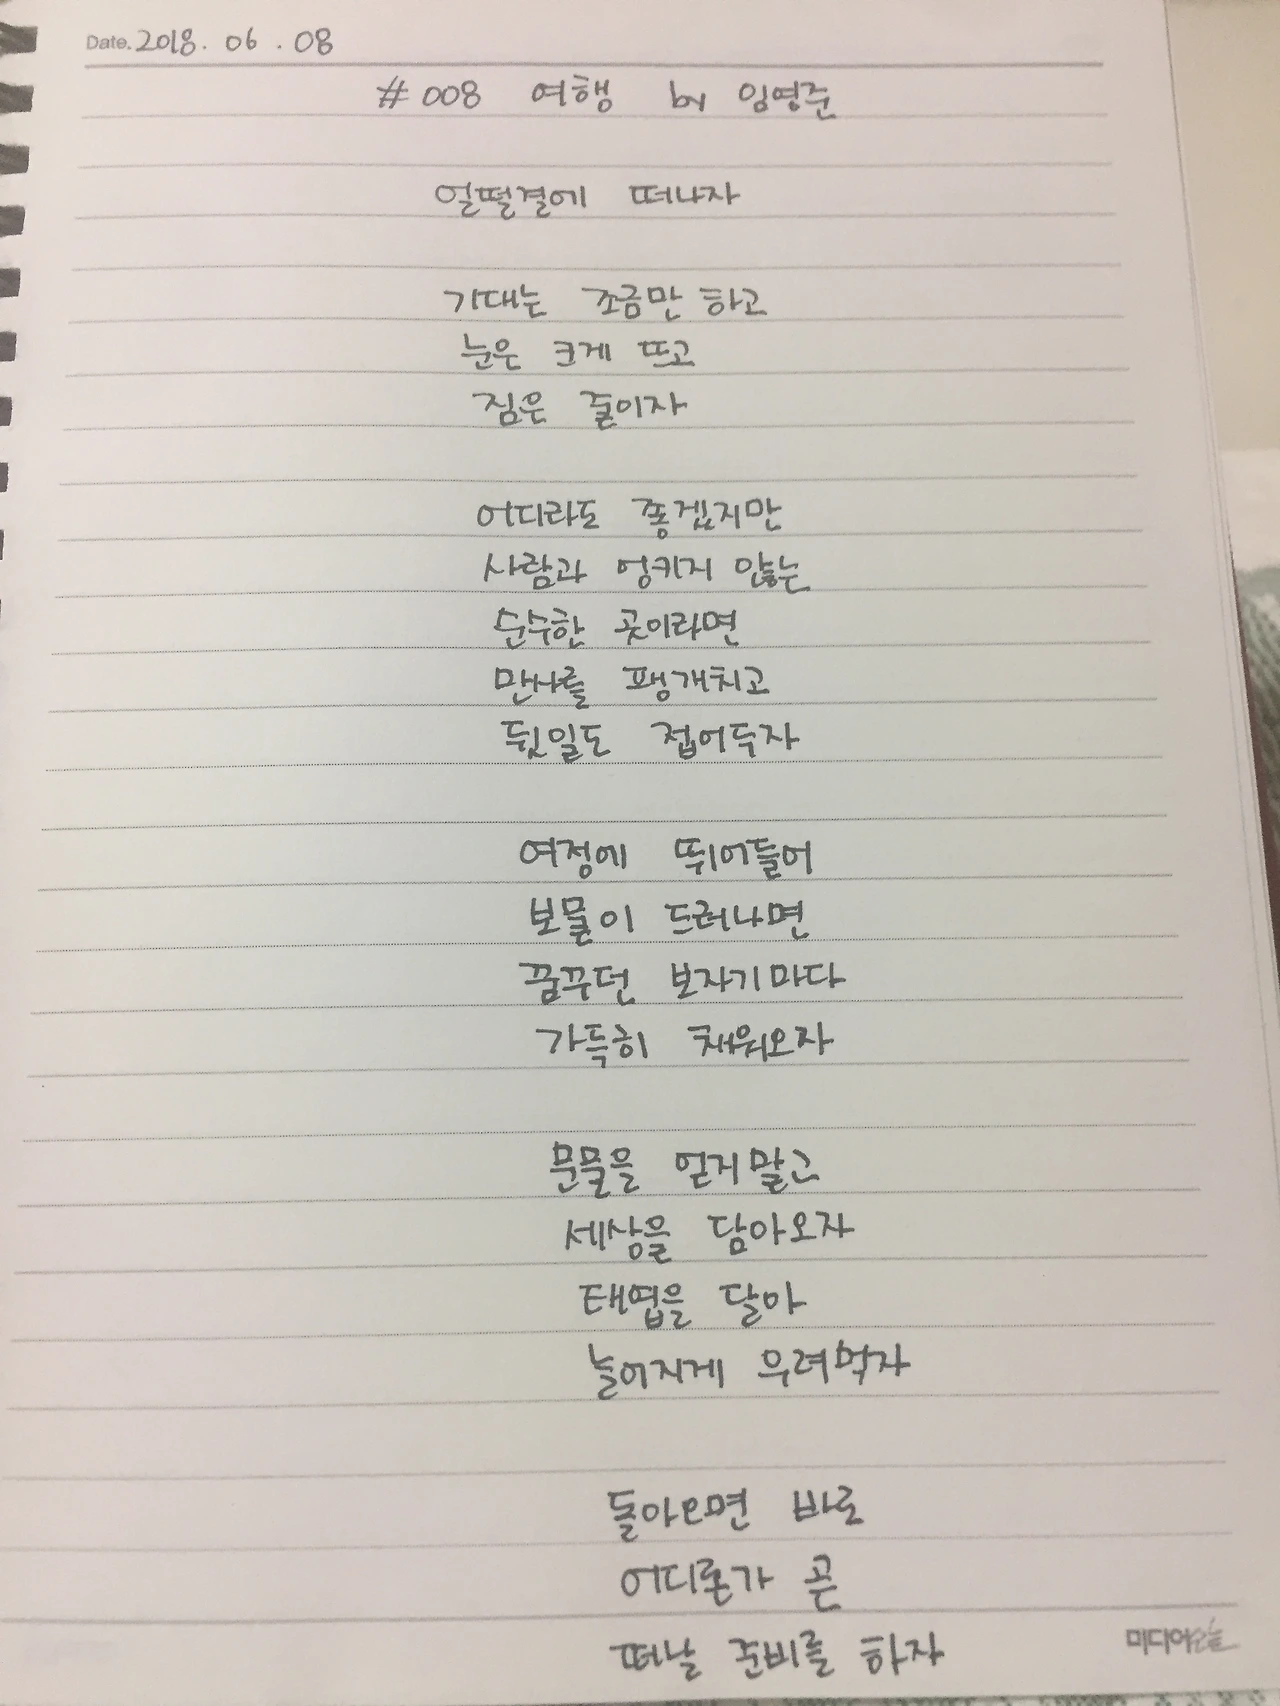 Date. 2018. 06. 08
# 008 여행 by 임영준
얼떨결에 떠나자
기대는 조금만 하고
눈은 크게 뜨고
짐은 줄이자
어디라도 좋겠지만
사람과 엉키지 않는
순수한 곳이라면
만사를 팽개치고
뒷일도 접어두자
여정에 뛰어들어
보물이 드러나면
꿈꾸던 보자기마다
가득히 채워오자
문물을 얻지말고
세상을 담아오자
태엽을 달아
늘어지게 우려먹자
돌아오면 바로
어디론가 곧
떠날 준비를 하자
미디어오늘